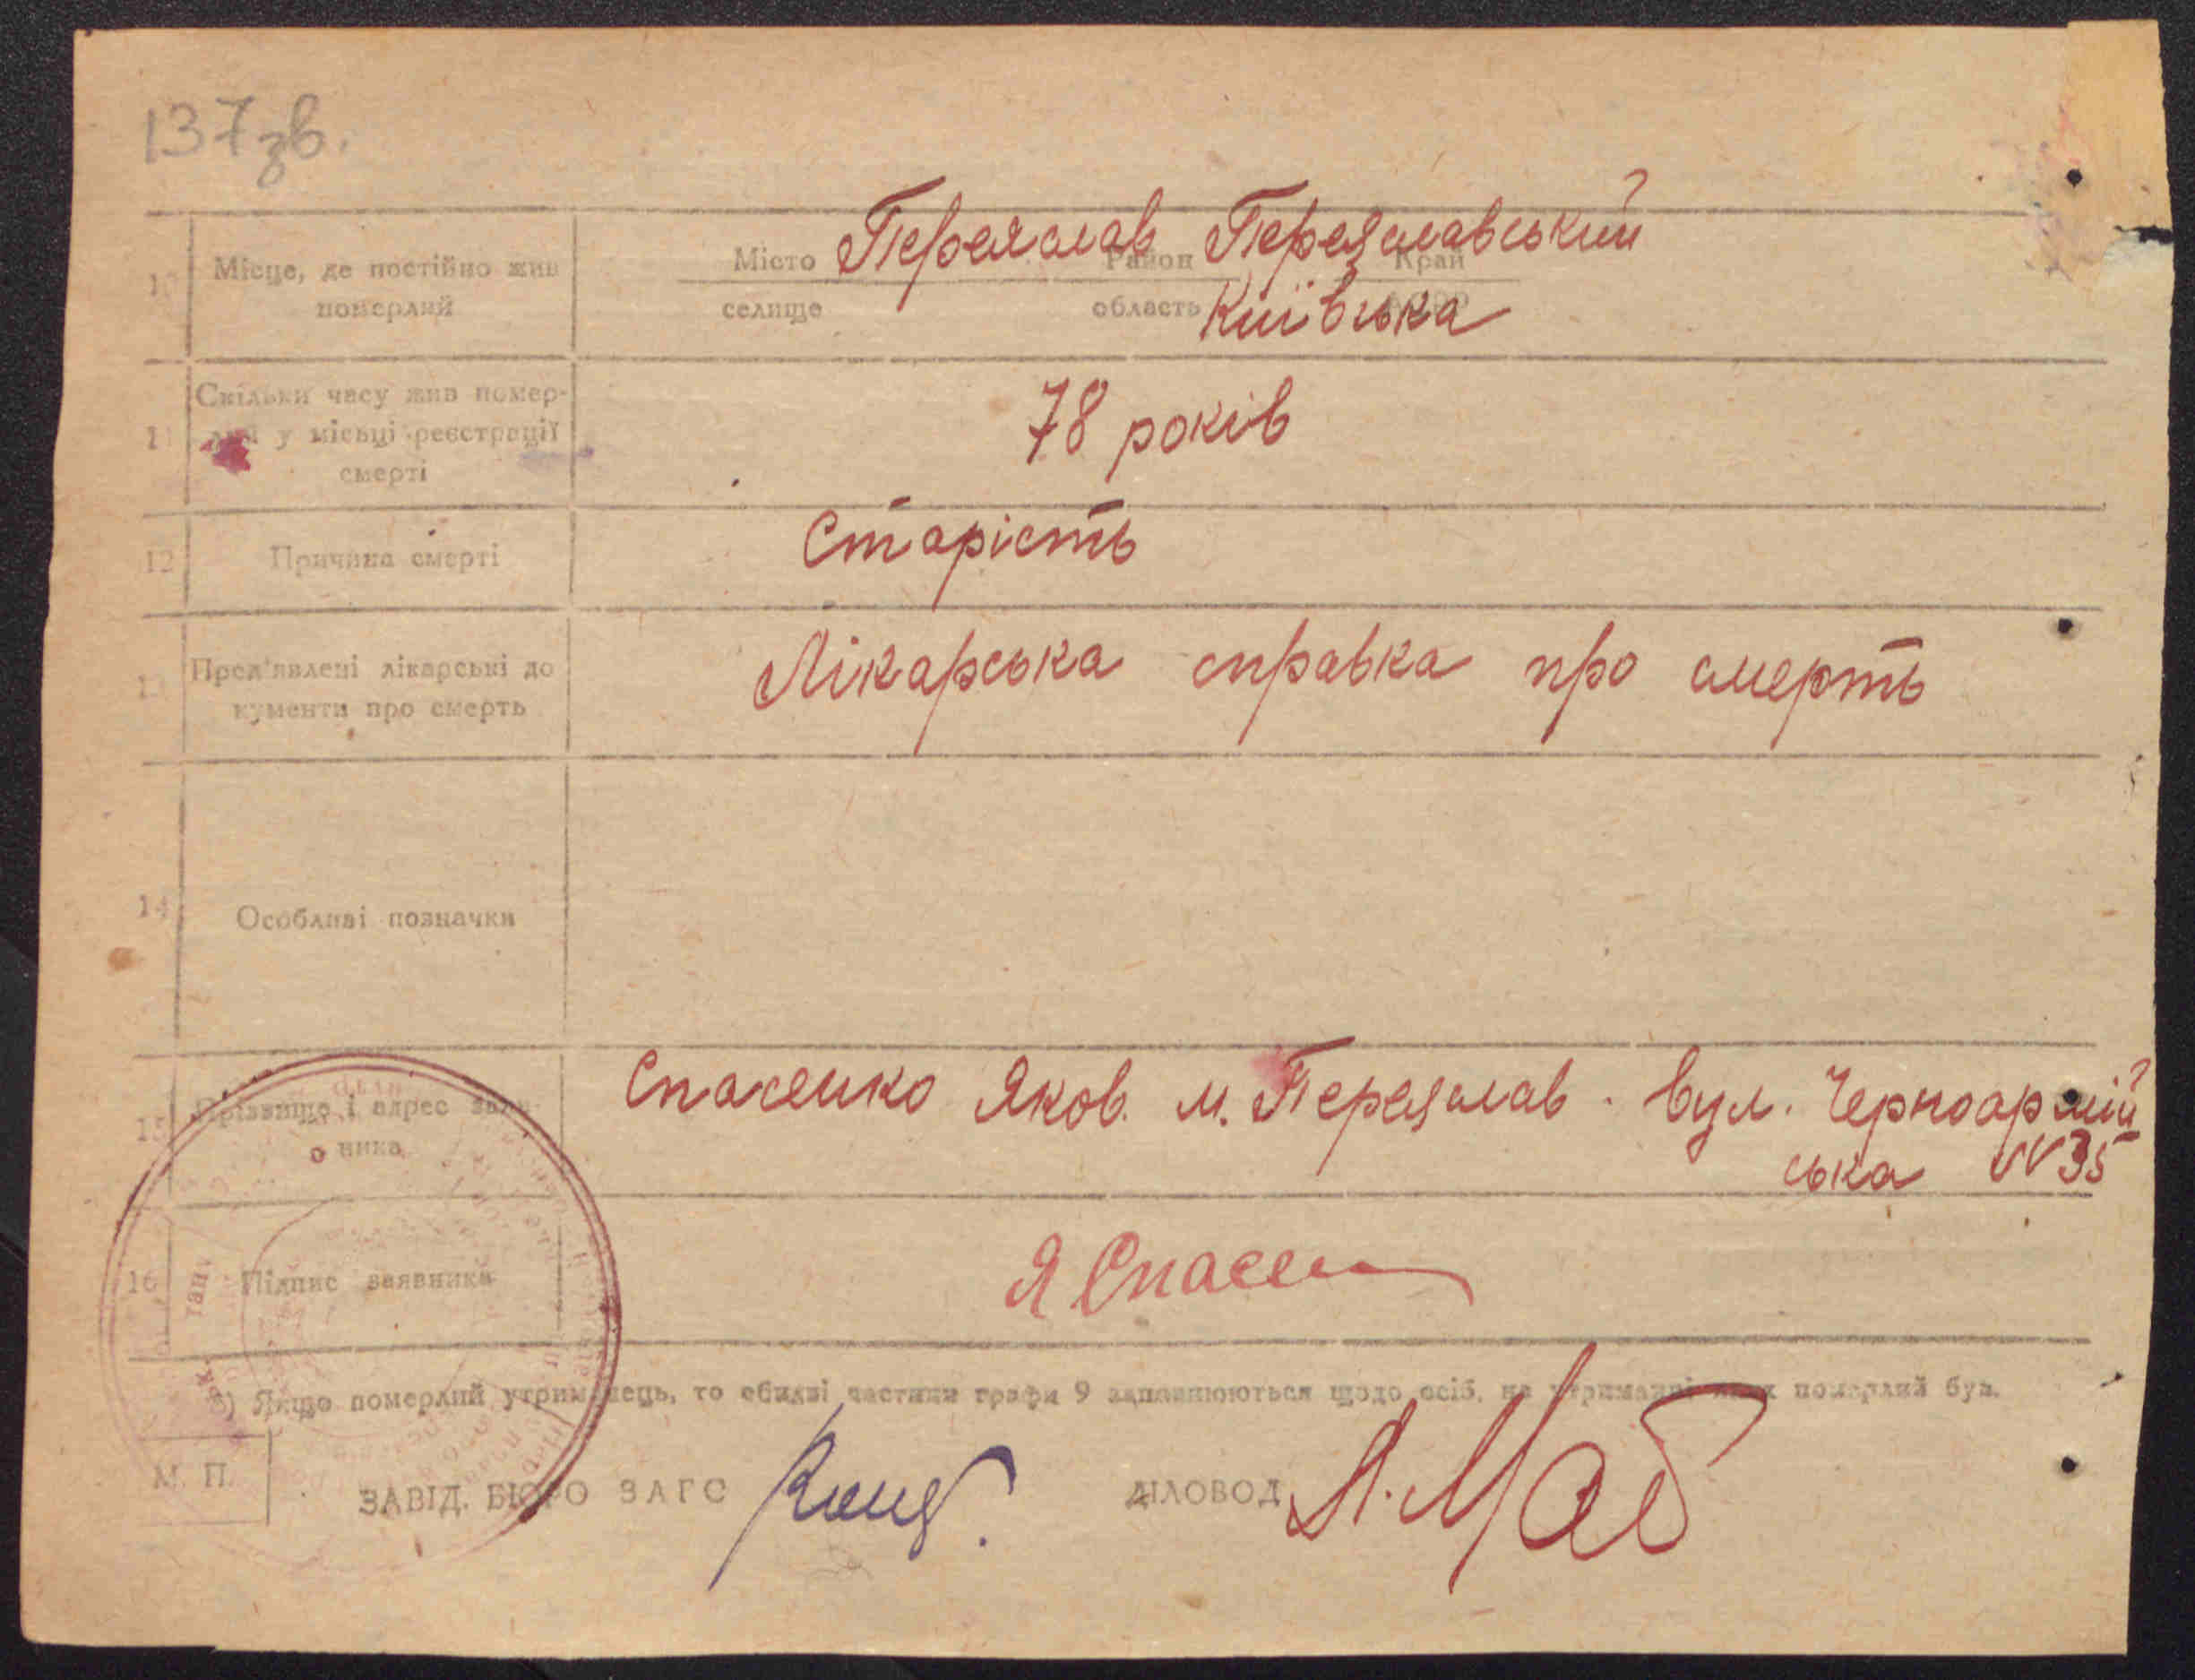 137зв.
10 Місце, де постійно жив померлий
Місто селище Переяслав Район Переяславський Край
область Київська
11 Скільки часу жив померлий у місьці реєстрації смерті
78 років
12 Причина смерті
Старість
13 Пред'явлені лікарські документи про смерть
Лікарська справка про смерть
14 Особливі позначки
15 Прізвище і адрес заявника
Спасенко Яков. м. Переяслав. вул. Черноармій
ська №35
16 Підпис заявника
Я Спасен
3) Якщо померлий утриманець, то обидві частини графи 9 заповнюються щодо осіб, на утриманні яких померлий був.
М. П.
ЗАВІД. БЮРО ЗАГС
ДІЛОВОД